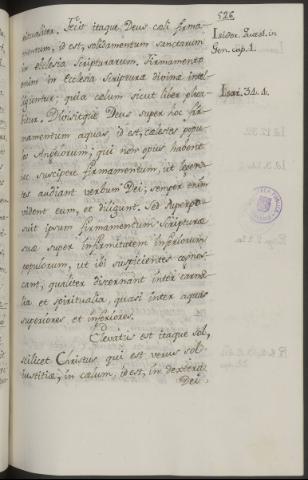 526
ritualiter. Fecit itaque Deus cœli firma-
mentum, id est, solidamentum sanctarum
in Ecclesia Scripturarum. Firmamento
enim in Ecclesia Scripturæ divinæ intel-
liguntur; quia cælum sicut liber plica-
bitur. Divisitque Deus super hoc fir-
mamentum aquas, id est, cælestes popu-
los Angelorum; qui non opus habent
suscipere firmamentum, ut legen-
tes audiant verbum Dei; semper enim
vident eum, et diligunt. Sed superpo-
suit ipsum firmamentum Scripturæ
suæ super infirmitatem inferiorum
populorum, ut ibi suspicientes cognos-
cant, qualiter discernant inter carna-
lia et spiritualia, quasi inter aquas
superiores et inferiores.
Elevatus est itaque sol,
scilicet Christus qui est verus sol
iustitiæ, in cælum, id est, in dextera
Dei
Isidor. Quæst. in
Gen. cap. 1.
Isai. 34. 4.